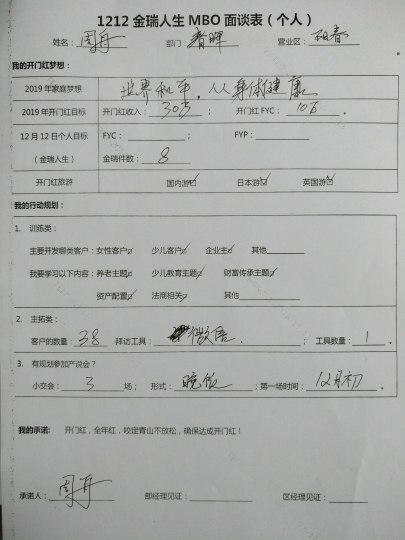 1212 金瑞人生 MBO 面谈表（个人）
姓名：周舟 部门：春晖 营业区：阳春
我的开门红梦想：
2019 年家庭梦想 世界和平，人身体健康
2019 年开门红目标 开门红收入：30万； 开门红 FYC：10万。
12 月 12 日个人目标（金瑞人生） FYC：； FYP：
金瑞件数：8
开门红旅游 国内游☑ 日本游☑ 英国游☑
我的行动规划：
1. 训练类：
主要开发哪类客户：女性客户☑ 少儿客户☑ 企业主☑ 其他
我要学习以下内容：养老主题☑ 少儿教育主题☑ 财富传承主题☑
资产配置☑ 法商相关☑ 其他
2. 主拓类：
客户的数量：38 拜访工具：微信； 工具数量：1。
3. 有规划参加产说会？
小交会：3场； 形式：晚饭；第一场时间：12月初
我的承诺： 开门红，全年红，咬定青山不放松，确保达成开门红！
承诺人：周舟 部经理见证： 区经理见证：